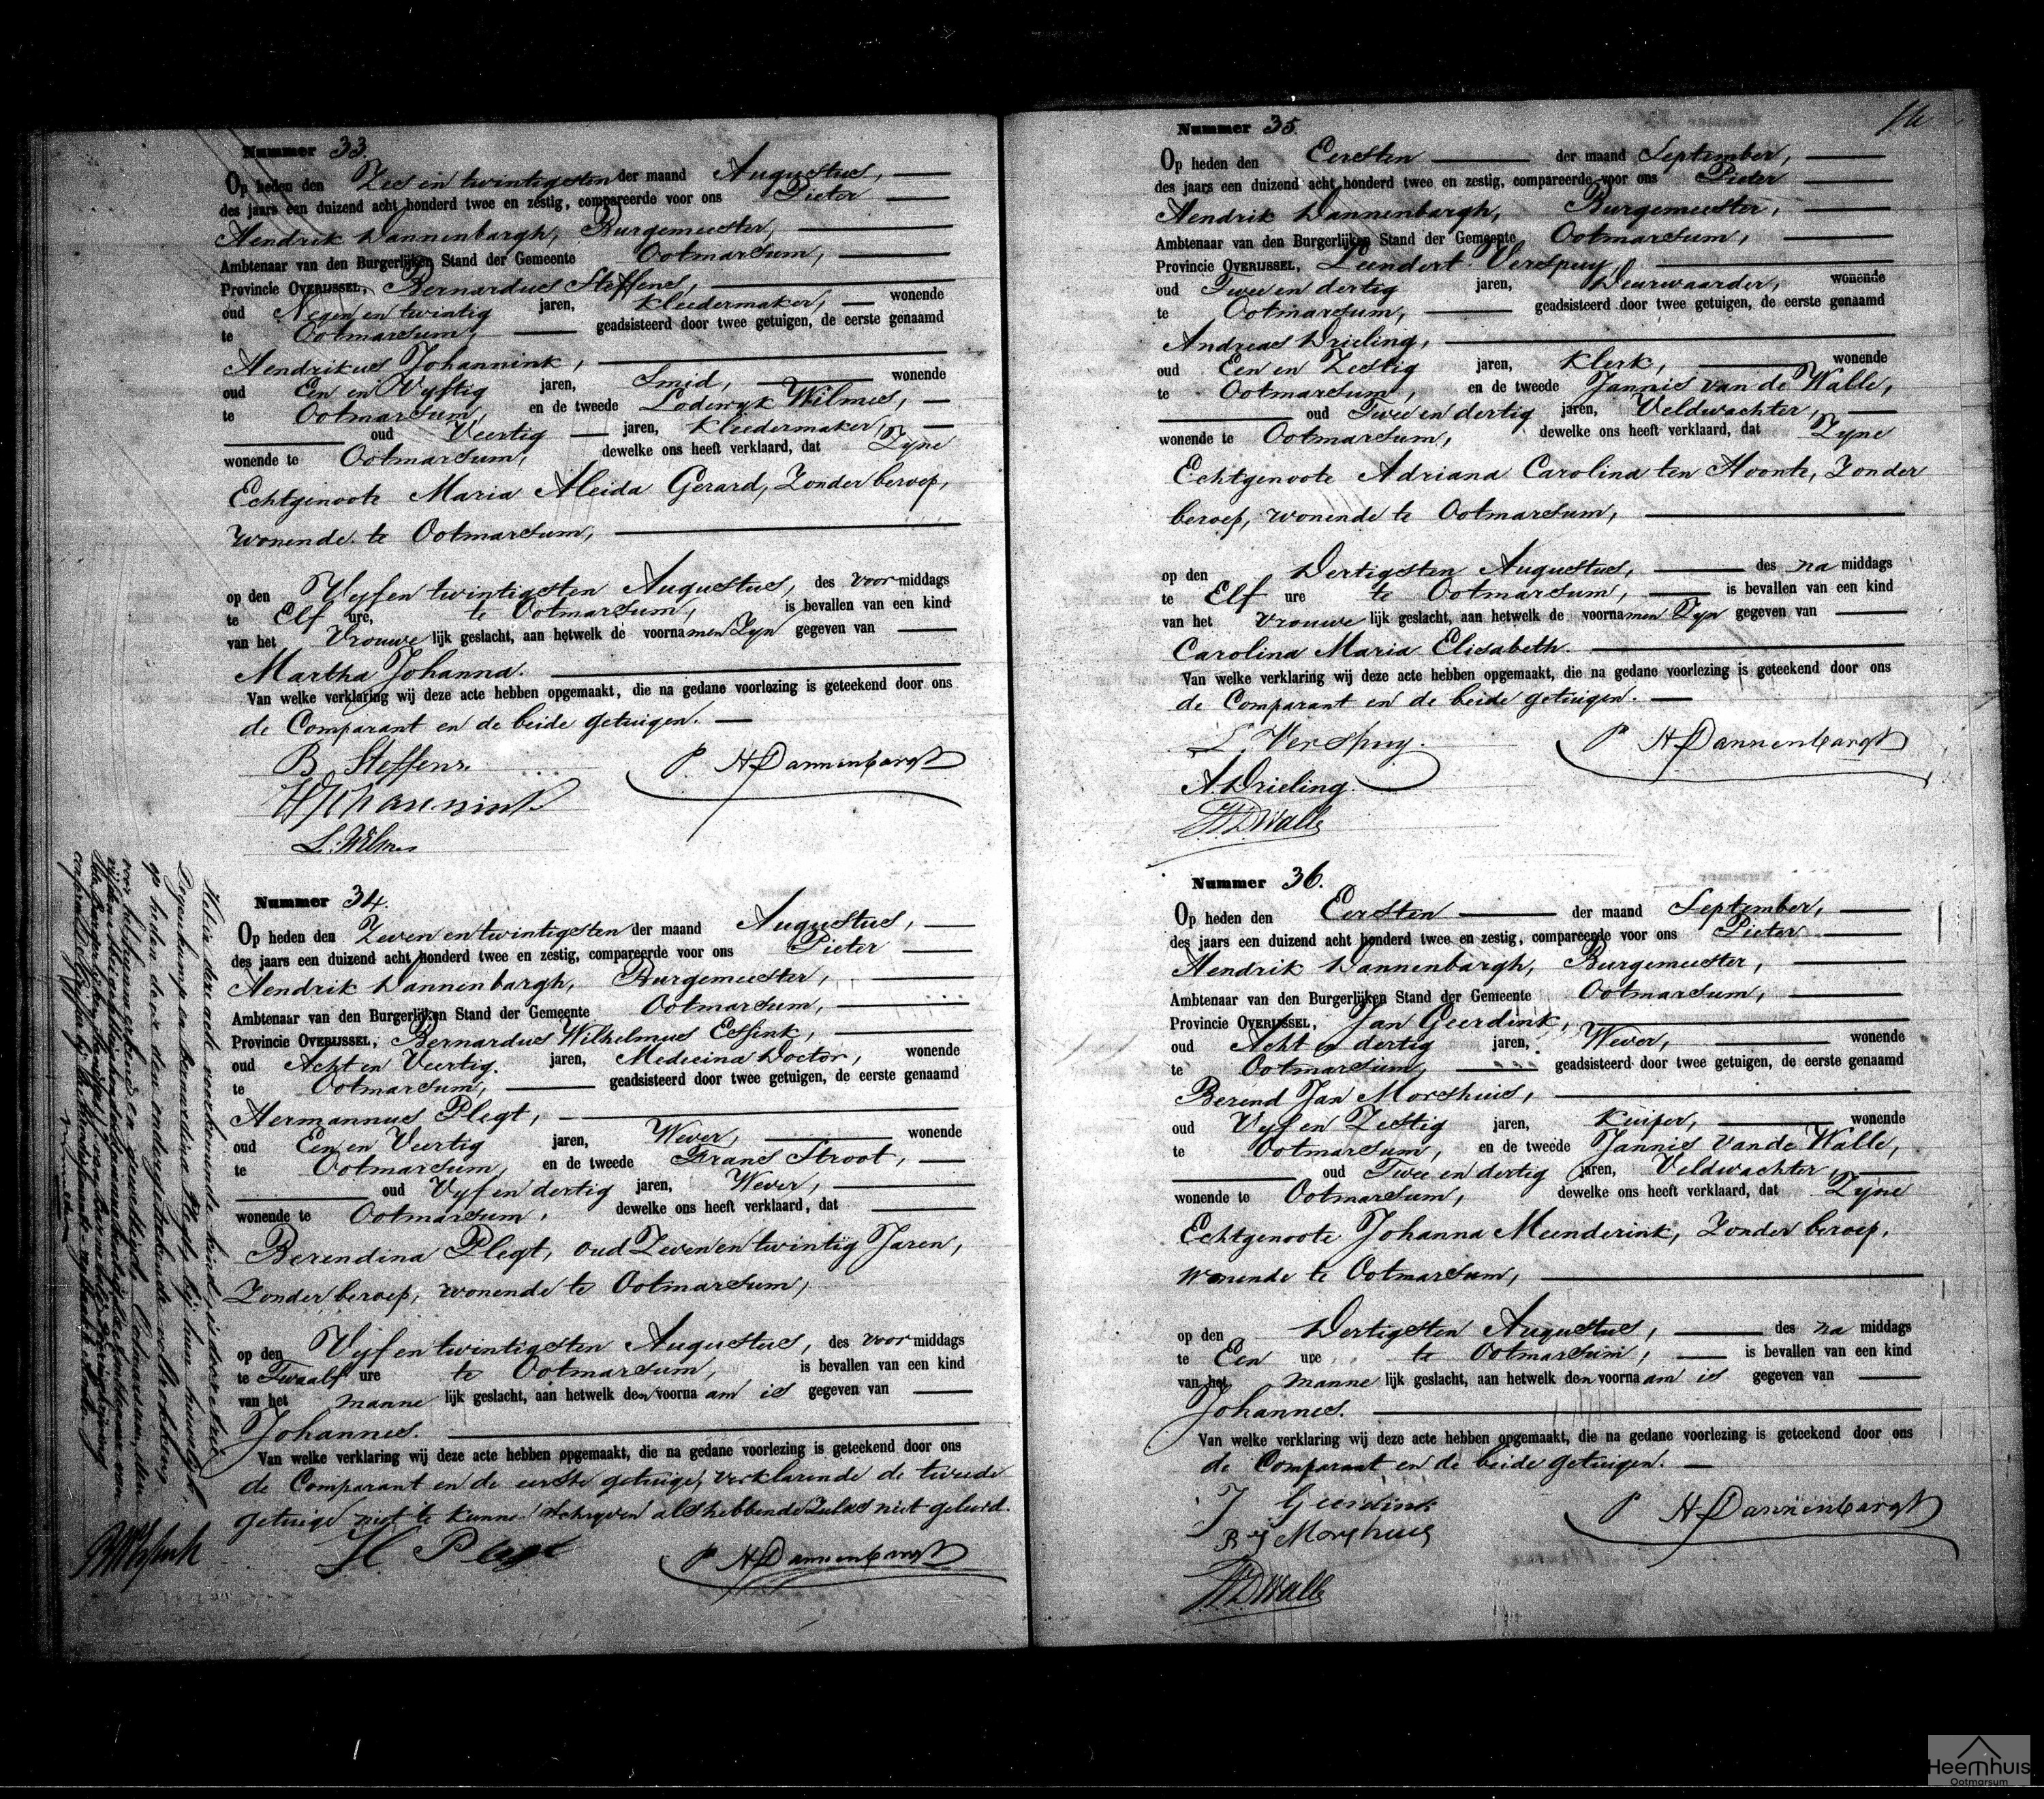 Nummer 33.
Op heden den Zes en twintigsten der maand Augustus,
des jaars een duizend acht honderd twee en zestig, compareerde voor ons Pieter
Hendrik Dannenbargh, Burgemeester,
Ambtenaar van den Burgerlijken Stand der Gemeente Ootmarsum,
Provincie OVERIJSSEL, Bernardus Steffens,
oud Negen en twintig jaren, Kleedermaker, wonende
te Ootmarsum, geadsisteerd door twee getuigen, de eerste genaamd
Hendrikus Johannink,
oud Een en Vyftig jaren, Smid, wonende
te Ootmarsum, en de tweede Lodewyk Wilmes,
oud Veertig jaren, Kleedermaker,
wonende te Ootmarsum, dewelke ons heeft verklaard, dat Zyne
Echtgenoote Maria Aleida Gerard, Zonder beroep,
wonende te Ootmarsum,
op den Vyf en twintigsten Augustus, des voormiddags
te Elf ure, te Ootmarsum, is bevallen van een kind
van het Vrouwelijk geslacht, aan hetwelk de voornamen Zyn gegeven van
Martha Johanna.
Van welke verklaring wij deze acte hebben opgemaakt, die na gedane voorlezing is geteekend door ons
de Comparant en de beide getuigen.
B Steffens. P H Dannenbargh
H Johannink
L. Wilmes
Nummer 34.
Op heden den Zeven en twintigsten der maand Augustus,
des jaars een duizend acht honderd twee en zestig, compareerde voor ons Pieter
Hendrik Dannenbargh, Burgemeester,
Ambtenaar van den Burgerlijken Stand der Gemeente Ootmarsum,
Provincie OVERIJSSEL, Bernardus Wilhelmus Essink,
oud Acht en Veertig. jaren, Medicina Doctor, wonende
te Ootmarsum, geadsisteerd door twee getuigen, de eerste genaamd
Hermannus Plegt,
oud Een en Veertig jaren, Wever, wonende
te Ootmarsum, en de tweede Frans Stroot,
oud Vyf en dertig jaren, Wever,
wonende te Ootmarsum, dewelke ons heeft verklaard, dat
Berendina Plegt, oud Zeven en twintig Jaren,
Zonder beroep, wonende te Ootmarsum,
op den Vyf en twintigsten Augustus, des voormiddags
te Twaalf ure te Ootmarsum, is bevallen van een kind
van het mannelijk geslacht, aan hetwelk den voornaam is gegeven van
Johannes.
Van welke verklaring wij deze acte hebben opgemaakt, die na gedane voorlezing is geteekend door ons
de Comparant en de eerste getuige, verklarende de tweede
getuige niet te kunnen schryven als hebbende Zulks niet geleerd.
H Plegt P H Dannenbargh
Het in deze acte voorkomende kind is door
en Bernardina Plegt bij hun huwelijk,
op heden door den ondergeteekende voltrokken,
Nummer 35.
14
Op heden den Eersten der maand September,
des jaars een duizend acht honderd twee en zestig, compareerde voor ons Pieter
Hendrik Dannenbargh, Burgemeester,
Ambtenaar van den Burgerlijken Stand der Gemeente Ootmarsum,
Provincie OVERIJSSEL, Leendert Verspuy,
oud Twee en dertig jaren, Deurwaarder, wonende
te Ootmarsum, geadsisteerd door twee getuigen, de eerste genaamd
Andreas Drieling,
oud Een en Zestig jaren, Klerk, wonende
te Ootmarsum, en de tweede Jannis van de Walle,
oud Twee en dertig jaren, Veldwachter,
wonende te Ootmarsum, dewelke ons heeft verklaard, dat Zyne
Echtgenoote Adriana Carolina ten Hoonte, Zonder
beroep, wonende te Ootmarsum,
op den Dertigsten Augustus, des na middags
te Elf ure te Ootmarsum, is bevallen van een kind
van het Vrouwelijk geslacht, aan hetwelk de voornamen Zyn gegeven van
Carolina Maria Elisabeth.
Van welke verklaring wij deze acte hebben opgemaakt, die na gedane voorlezing is geteekend door ons
de Comparant en de beide getuigen.
L. Verspuy. P H Dannenbargh
A. Drieling.
J V D Walle
Nummer 36.
Op heden den Eersten der maand September,
des jaars een duizend acht honderd twee en zestig, compareerde voor ons Pieter
Hendrik Dannenbargh, Burgemeester,
Ambtenaar van den Burgerlijken Stand der Gemeente Ootmarsum,
Provincie OVERIJSSEL, Jan Geerdink,
oud Acht en dertig jaren, Wever, wonende
te Ootmarsum, geadsisteerd door twee getuigen, de eerste genaamd
Berend Jan Morshuis,
oud Vyf en Zestig jaren, Kuiper, wonende
te Ootmarsum, en de tweede Jannis van de Walle,
oud Twee en dertig jaren, Veldwachter,
wonende te Ootmarsum, dewelke ons heeft verklaard, dat Zyne
Echtgenoote Johanna Meenderink, Zonder beroep,
wonende te Ootmarsum,
op den Dertigsten Augustus, des na middags
te Een ure te Ootmarsum, is bevallen van een kind
van het mannelijk geslacht, aan hetwelk den voornaam is gegeven van
Johannes.
Van welke verklaring wij deze acte hebben opgemaakt, die na gedane voorlezing is geteekend door ons
de Comparant en de beide getuigen.
J Geerdink P H Dannenbargh
B J Morshuis
J V D Walle
Heemhuis
Ootmarsum